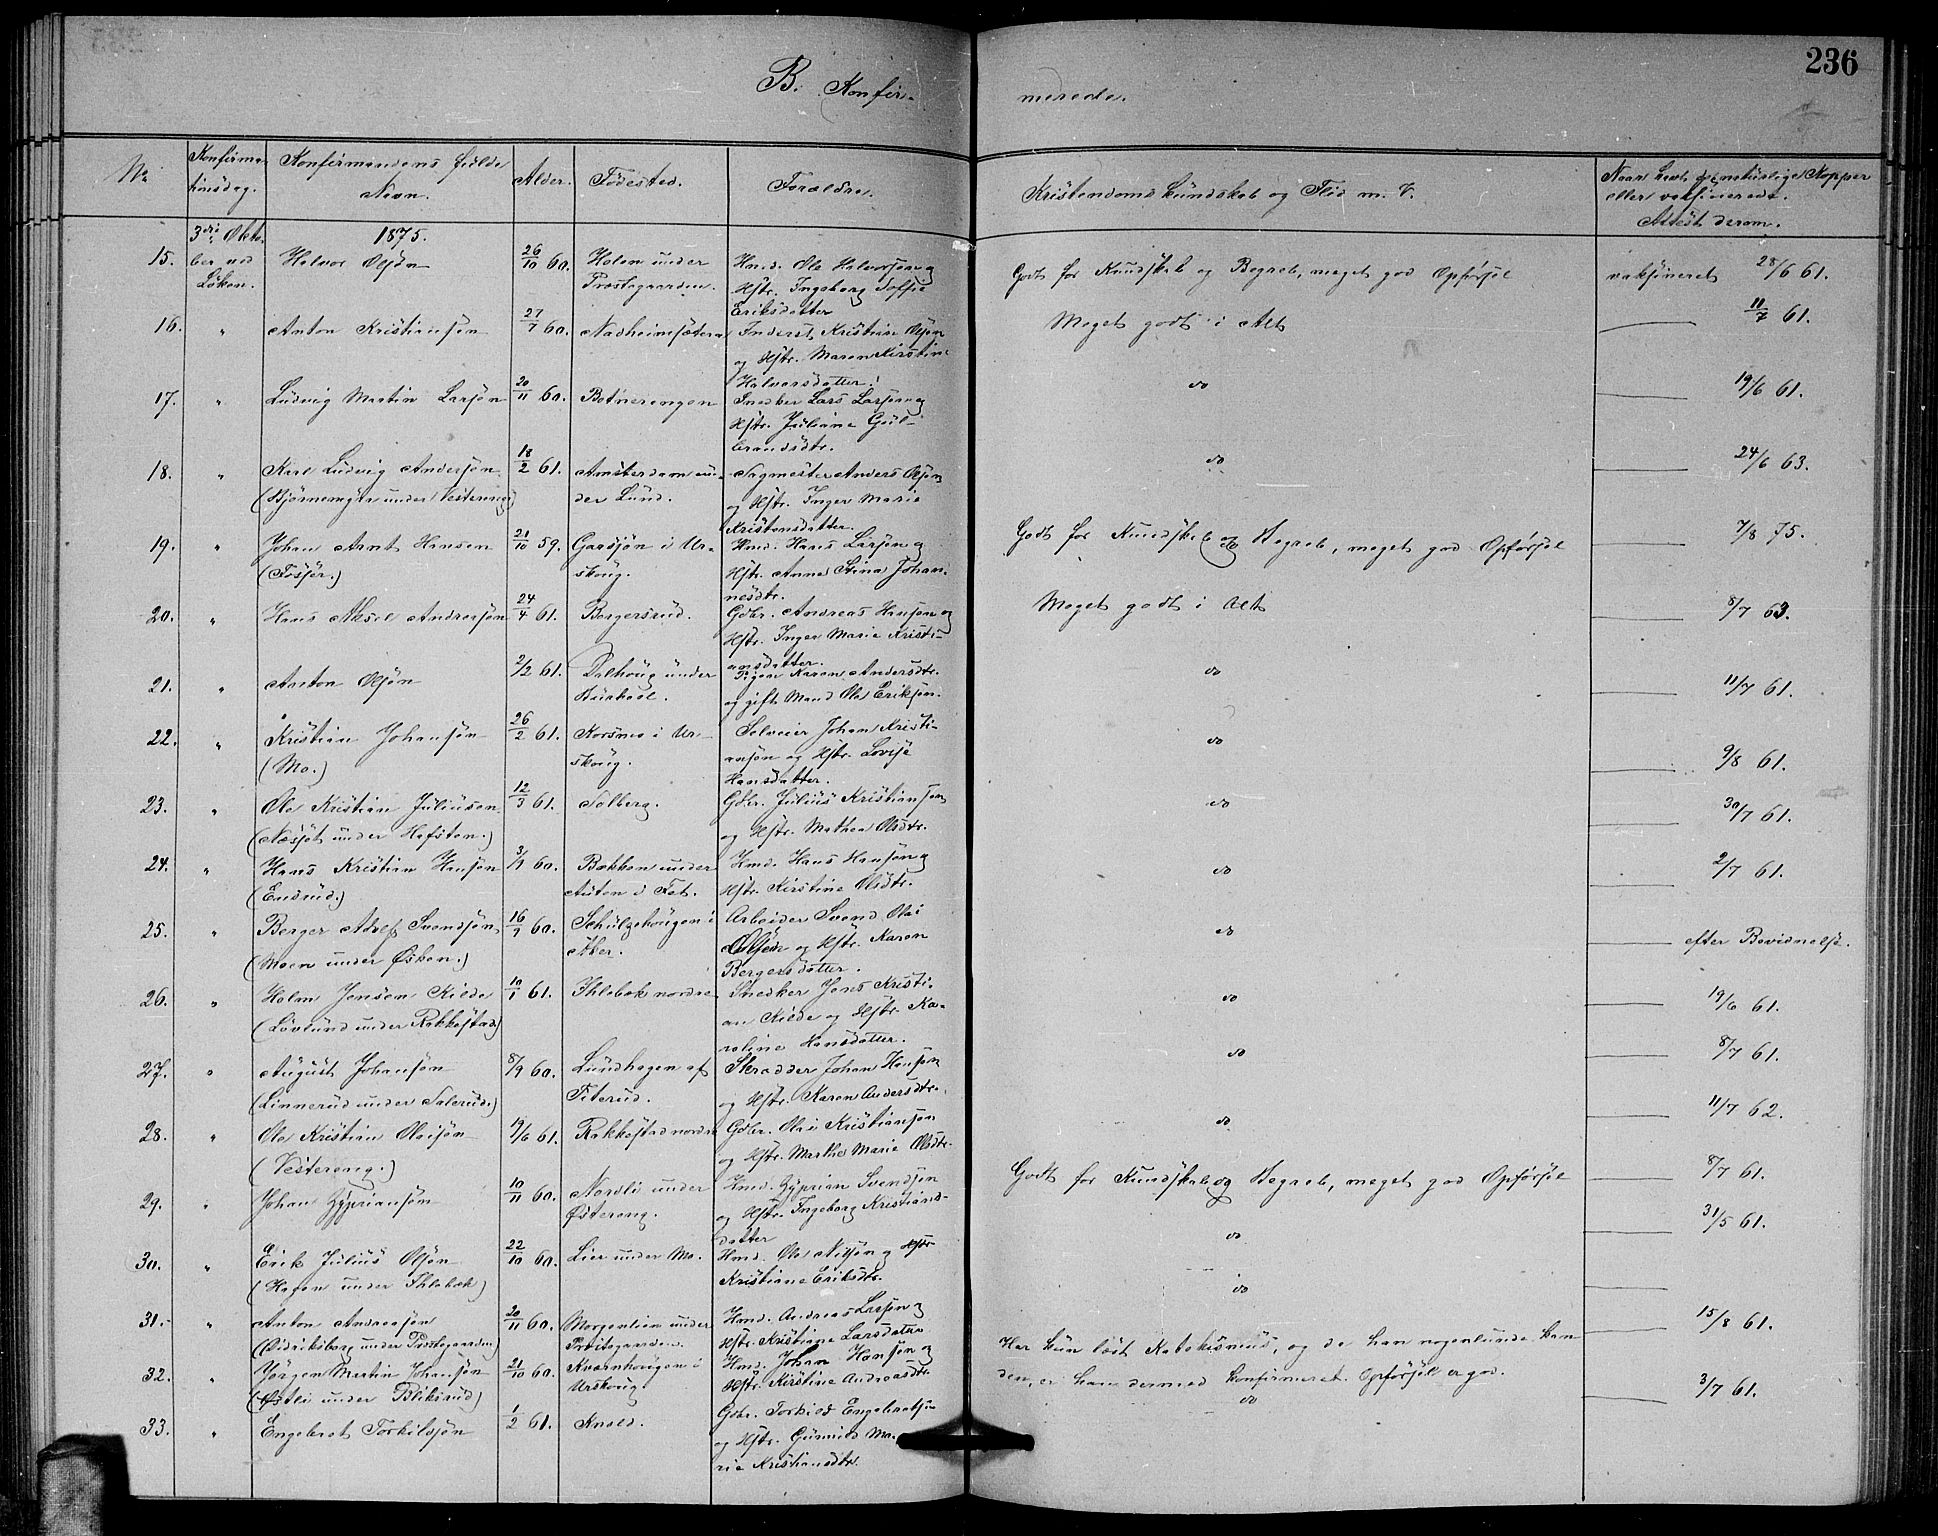 236
B. Konfir-
merede.
No
Konfirma-
tionsdag.
Konfirmandens fulde
Navn.
Alder.
Fødested.
Forældre.
Kristendomskundskab og Flid m. V.
Naar havt de naturlige Kopper
eller vaksinerede.
Attest derom.
3die Okto-
ber ved
Løken.
1875.
15. Halvor Olsøn 26/10 60. Holen under
Præstegaarden.
Hmd. Ole Halvorsøn og
Hstr. Ingeborg Soffie
Eriksdatter
Godt for Kundskab og Begreb, meget god Opførsel
vaksineret 28/6 61.
16. " Anton Kristiansøn 27/7 60. Nadheimsæteren
Inderst Kristian Olsøn
og Hstr. Maren Kirstine
Halvorsdatter.
Meget godt i Alt
11/7 61.
17. " Ludvig Martin Larsøn 20/11 60. Botnerengen
Snedker Lars Larsøn og
Hstr. Juliane Gul-
brandsdtr.
do
19/6 61.
18. " Karl Ludvig Andersøn
(Bjørnemyra under Vestereng)
18/2 61. Amsterdam un-
der Lund.
Sagmester Anders Olsøn
og Hstr. Inger Marie
Kristensdatter.
do
24/6 63.
19. " Johan Arnt Hansen
(Fosser.)
21/10 59. Garsjøn i Ur-
skoug.
Hmd. Hans Larsøn og
Hstr. Anne Stina Johan-
nesdtr.
Godt for Kundskab og Begreb, meget god Opførsel
7/8 75.
20. " Hans Aksel Andreasøn 24/4 61. Bergersrud.
Gdbr. Andreas Hansøn og
Hstr. Inger Marie Kristi-
ansdatter.
Meget godt i Alt
8/7 63.
21. " Anton Olsøn 2/2 61. Dalhoug under
Kurksøl.
Pigen Karen Andersdtr.
og gift Mand Ole Eriksøn.
do
11/7 61.
22. " Kristian Johansøn
(Mo.)
26/2 61. Korsmo i Ur-
skoug.
Selveier Johan Kristi-
ansøn og Hstr. Lovise
Hansdatter.
do
9/8 61.
23. " Ole Kristian Juliusen
(Næsset under Hafsten.)
12/3 61. Solberg.
Gdbr. Julius Kristiansøn
og Hstr. Mathea Olsdtr.
do
30/7 61.
24. " Hans Kristian Hansøn
(Ensrud.)
3/9 60. Bakken under
Auten i Fet.
Hmd. Hans Hansøn og
Hstr. Kirstine Olsdtr.
do
2/7 61.
25. " Berger Adolf Svendsøn
(Moen under Østen.)
16/7 60. Schulzehougen i
Aker.
Arbeider Svend Olai
Olsøn og Hstr. Karen
Bergersdatter.
do
efter Bevidnelse.
26. " Holm Jensen Kilde
(Løvlund under Rakkestad)
10/1 61. Ihlebæk nordre
Snedker Jens Kristi-
an Kilde og Hstr. Ka-
roline Hansdatter.
do
19/6 61.
27. " August Johansøn
(Linnerud under Salerud.)
8/9 60. Lundhagen af
Titerud.
Skrædder Johan Hansøn
og Hstr. Karen Andersdtr.
do
8/7 61.
28. " Ole Kristian Olaisøn
(Vestereng.)
19/6 61. Rakkestad nordre
Gdbr. Olai Kristiansøn
og Hstr. Marthe Marie Olsdtr.
do
11/7 62.
29. " Johan Zypriansøn 10/11 60. Nordli under
Østereng.
Hmd. Zyprian Svendsøn
og Hstr. Ingeborg Kristians-
datter
Godt for Kundskab og Begreb, meget god Opførsel
8/7 61.
30. " Erik Julius Olsøn
(Hagen under Ihlebæk)
22/10 60. Lier under Mo.
Hmd. Ole Nilsøn og Hstr.
Kristiane Eriksdtr.
do
31/5 61.
31. " Anton Andreasøn
(Didriksborg under Præstegaarden)
20/11 60. Morgenlien under
Præstegaarden.
Hmd. Andreas Larsøn og
Hstr. Kristiane Larsdatter
do
15/8 61.
32. " Jørgen Martin Johansøn
(Østli under Bliksrud)
21/10 60. Kværnhougen i
Urskoug.
Hmd. Johan Hansøn og
Hstr. Kirstine Andreasdtr.
Har kun læst Katekismus, og da han nogenlunde kan
den, er han dermed konfirmeret. Opførsel er god.
3/7 61.
33. " Engebret Torkilsøn 1/2 61. Knold.
Gdbr. Torkild Engebretsøn
og Hstr. Gunnild Ma-
rie Kristiansdtr.
do